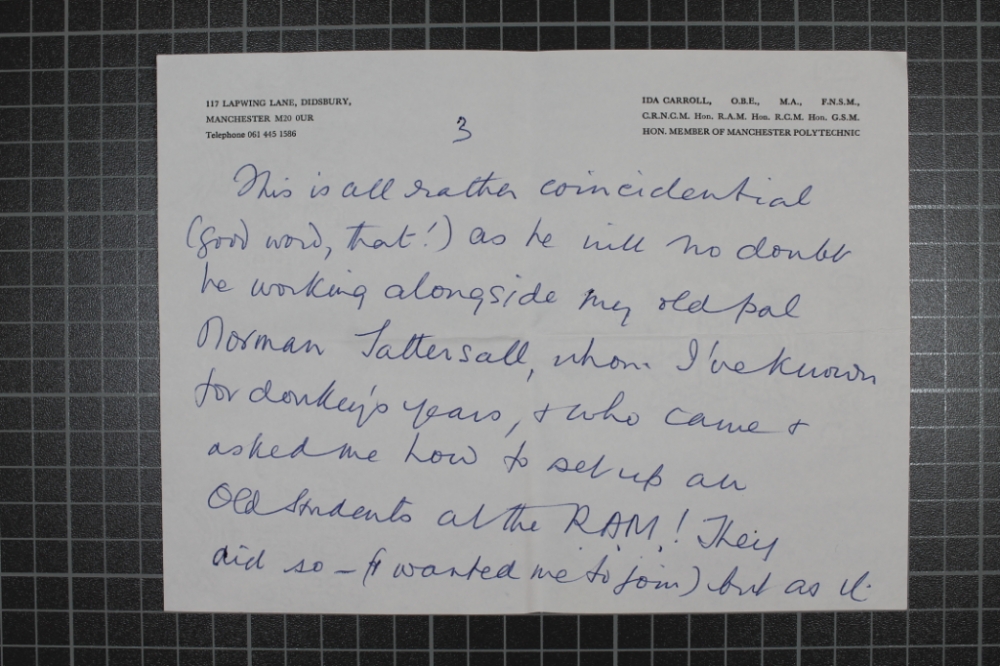 117 LAPWING LANE, DIDSBURY,
MANCHESTER M20 0UR
Telephone 061 445 1586
IDA CARROLL, O.B.E., M.A., F.N.S.M.,
C.R.N.C.M. Hon. R.A.M. Hon. R.C.M. Hon. G.S.M.
HON. MEMBER OF MANCHESTER POLYTECHNIC
3
This is all rather coincidential
(good word, that!) as he will no doubt
be working alongside my old pal
Norman Tattersall, whom I've known
for donkey's years, & who came &
asked me how to set up an
Old Students at the RAM! They
did so - (& wanted me to join) but as it